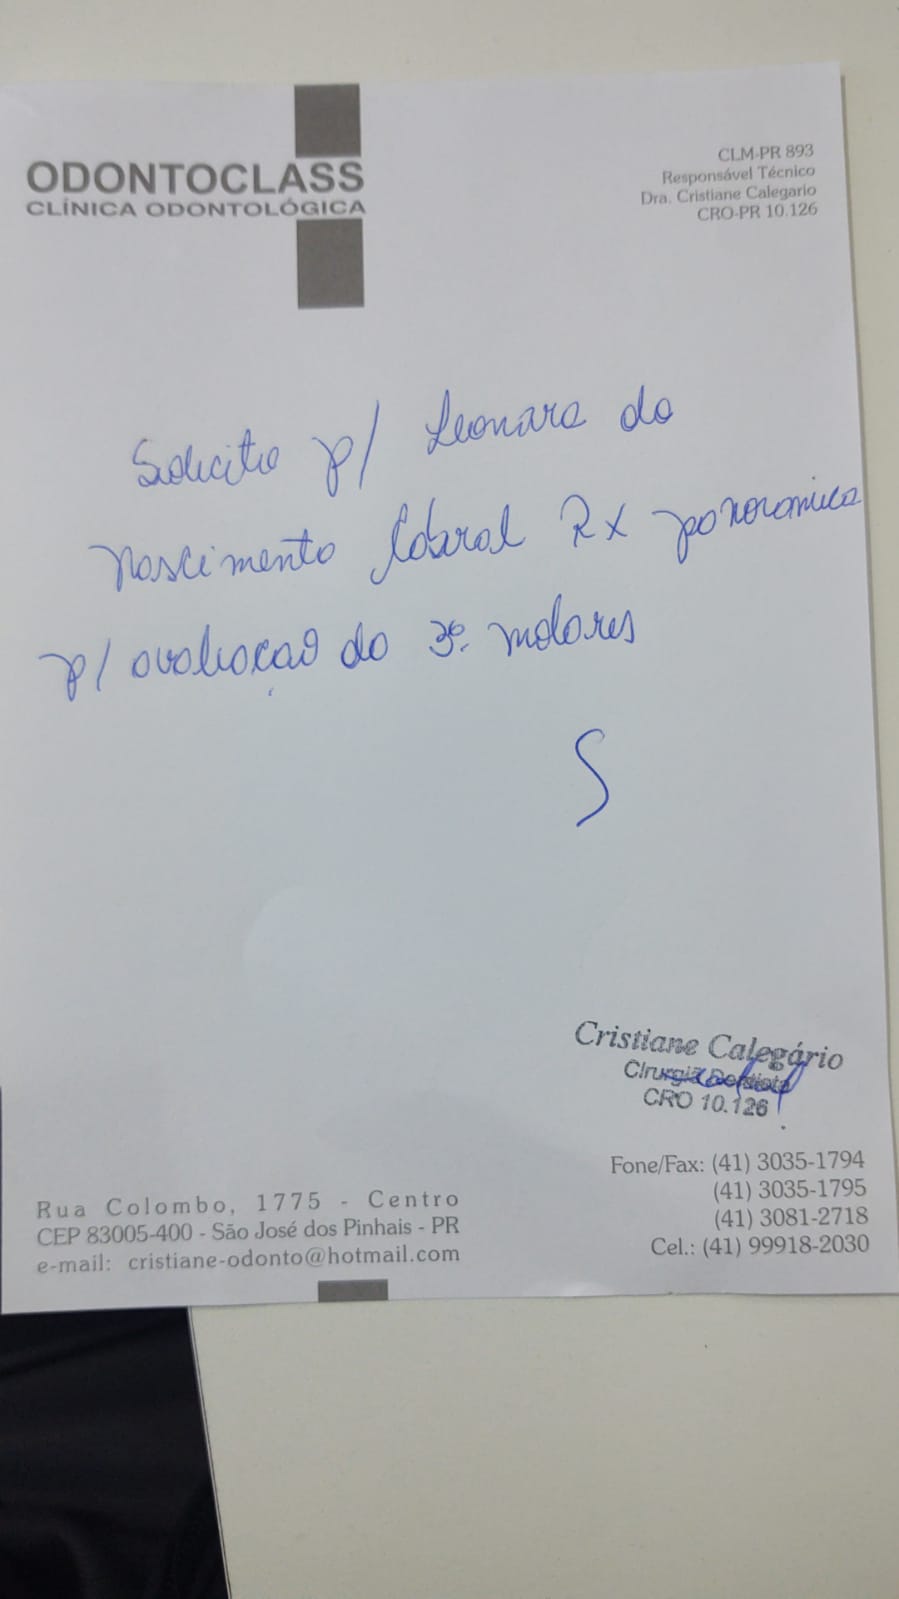 ODONTOCLASS
CLÍNICA ODONTOLÓGICA
CLM-PR 893
Responsável Técnico
Dra. Cristiane Calegario
CRO-PR 10.126
Solicito p/ Leonara do
nascimento Cabral Rx panoramica
p/ avaliação do 3º. molares
Cristiane Calegário
Cirurgiã Dentista
CRO 10.126
Fone/Fax: (41) 3035-1794
(41) 3035-1795
(41) 3081-2718
Cel.: (41) 99918-2030
Rua Colombo, 1775 - Centro
CEP 83005-400 - São José dos Pinhais - PR
e-mail: cristiane-odonto@hotmail.com